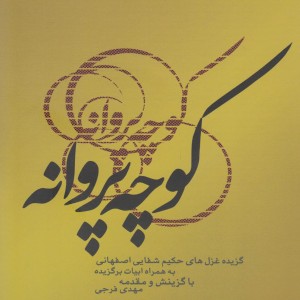 کوچه پروانه
کوچه پروانه
گزیده غزل های حکیم شفایی اصفهانی
به همراه ابیات برگزیده
با گزینش و مقدمه
مهدی فرجی